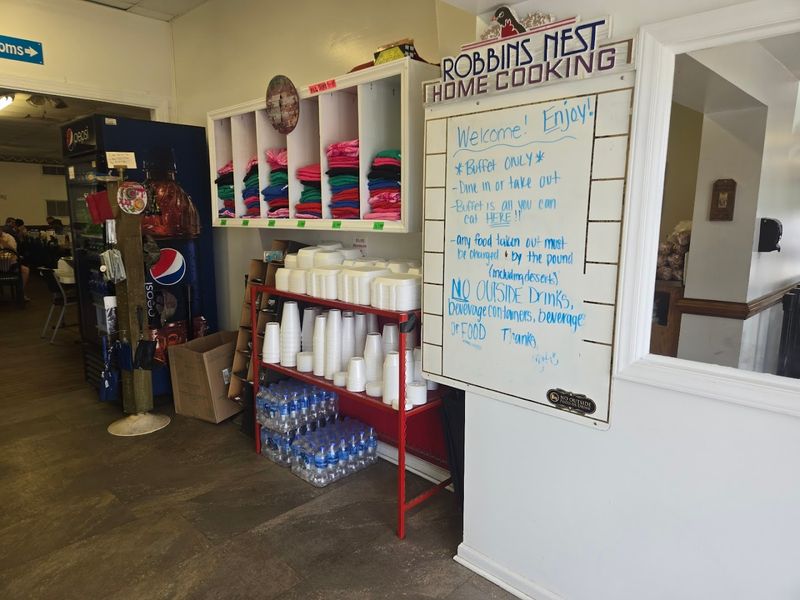 oms→
pepsi
pepsi
ROBBINS NEST
HOME COOKING
Welcome! Enjoy!
*BUFFET ONLY*
- Dine in or take out
- Buffet is all you can
eat HERE!!
- any food taken out must
be charged by the pound
(including desserts)
NO OUTSIDE Drinks,
beverage containers, beverage
or FOOD Thanks
NO OUTSIDE